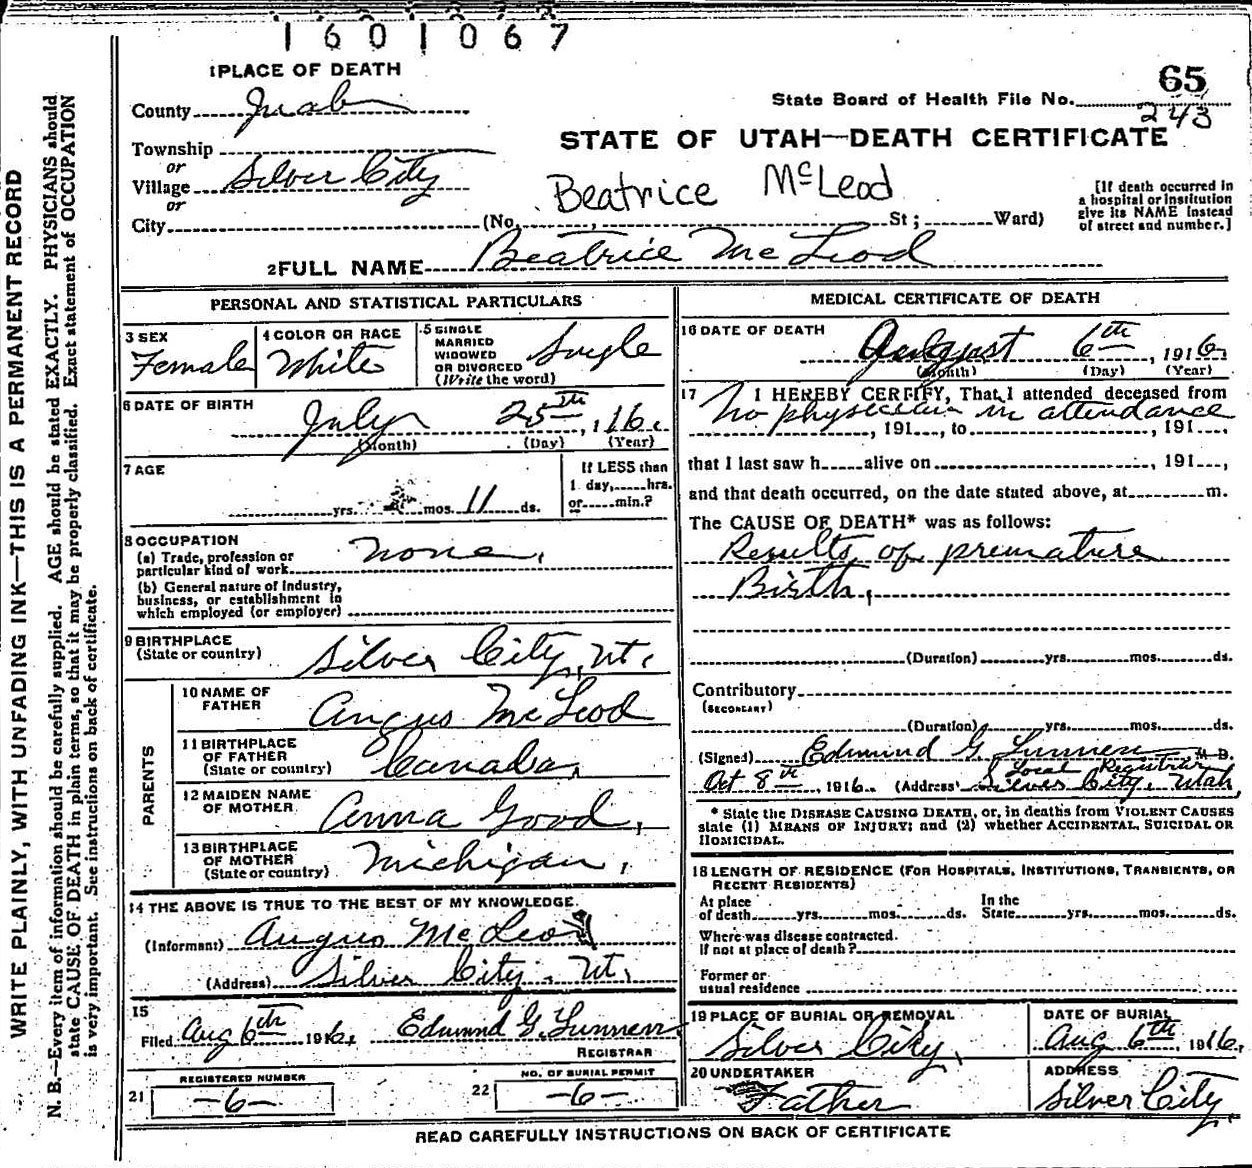 1601067
1 PLACE OF DEATH
65
County Juab
State Board of Health File No. 243
STATE OF UTAH—DEATH CERTIFICATE
Township
or
Village Silver City
or
Beatrice McLeod
[If death occurred in
a hospital or institution
give its NAME instead
of street and number.]
City (No. St; Ward)
2 FULL NAME Beatrice McLeod
PERSONAL AND STATISTICAL PARTICULARS
3 SEX
Female
4 COLOR OR RACE
White
5 SINGLE
MARRIED
WIDOWED
OR DIVORCED
(Write the word)
Single
6 DATE OF BIRTH
July 25th, 1916.
(Month) (Day) (Year)
7 AGE
yrs. mos. 11 ds.
If LESS than
1 day, hrs.
or min.?
8 OCCUPATION
(a) Trade, profession or
particular kind of work none,
(b) General nature of industry,
business, or establishment in
which employed (or employer)
9 BIRTHPLACE
(State or country) Silver City, Ut.
PARENTS
10 NAME OF
FATHER Angus McLeod
11 BIRTHPLACE
OF FATHER
(State or country) Canada,
12 MAIDEN NAME
OF MOTHER Anna Good,
13 BIRTHPLACE
OF MOTHER
(State or country) Michigan,
14 THE ABOVE IS TRUE TO THE BEST OF MY KNOWLEDGE.
(Informant) Angus McLeod
(Address) Silver City, Ut.
15
Filed Aug 6th 1916, Edmund G.
REGISTRAR
21 REGISTERED NUMBER
—6—
22 NO. OF BURIAL PERMIT
—6—
MEDICAL CERTIFICATE OF DEATH
16 DATE OF DEATH
August 6th, 1916.
(Month) (Day) (Year)
17 I HEREBY CERTIFY, That I attended deceased from
No physician in attendance
, 191 , to , 191 ,
that I last saw h alive on , 191 ,
and that death occurred, on the date stated above, at m.
The CAUSE OF DEATH* was as follows:
Results of premature
Birth,
(Duration) yrs. mos. ds.
Contributory
(SECONDARY)
(Duration) yrs. mos. ds.
(Signed) Edmund G. M. D.
Local Registrar
Oct 8th, 1916. (Address) Silver City, Utah,
* State the DISEASE CAUSING DEATH, or, in deaths from VIOLENT CAUSES
state (1) MEANS OF INJURY; and (2) whether ACCIDENTAL, SUICIDAL OR
HOMICIDAL.
18 LENGTH OF RESIDENCE (FOR HOSPITALS, INSTITUTIONS, TRANSIENTS, OR
RECENT RESIDENTS)
At place
of death yrs. mos. ds.
In the
State yrs. mos. ds.
Where was disease contracted.
If not at place of death?
Former or
usual residence
19 PLACE OF BURIAL OR REMOVAL
Silver City,
DATE OF BURIAL
Aug 6th, 1916.
20 UNDERTAKER
Father
ADDRESS
Silver City,
READ CAREFULLY INSTRUCTIONS ON BACK OF CERTIFICATE
WRITE PLAINLY, WITH UNFADING INK—THIS IS A PERMANENT RECORD
N. B.—Every item of information should be carefully supplied. AGE should be stated EXACTLY. PHYSICIANS should
state CAUSE OF DEATH in plain terms, so that it may be properly classified. Exact statement of OCCUPATION
is very important. See instructions on back of certificate.